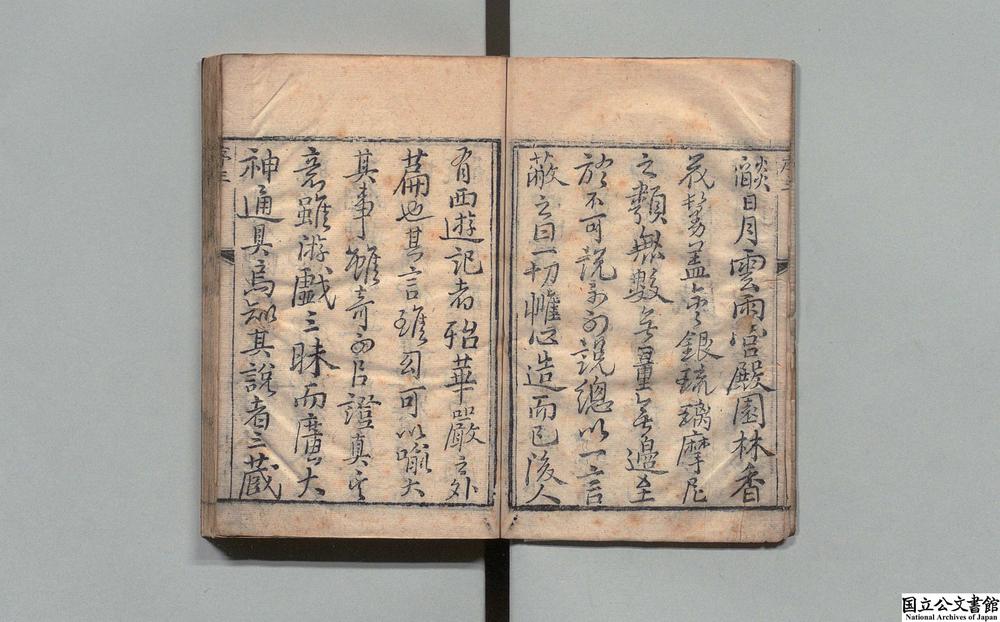 燄日月雲雨宮殿園林香
花鬘蓋金銀琉璃摩尼
之類無數無量無邊至
於不可說不可說總以一言
蔽之曰一切惟心造而已後人
有西遊記者殆華嚴之外
篇也其言雖幻可以喻大
其事雖奇而可以證真其
意雖游戲三昧而廣大
神通具焉知其說者三藏
序三
国立公文書館
National Archives of Japan